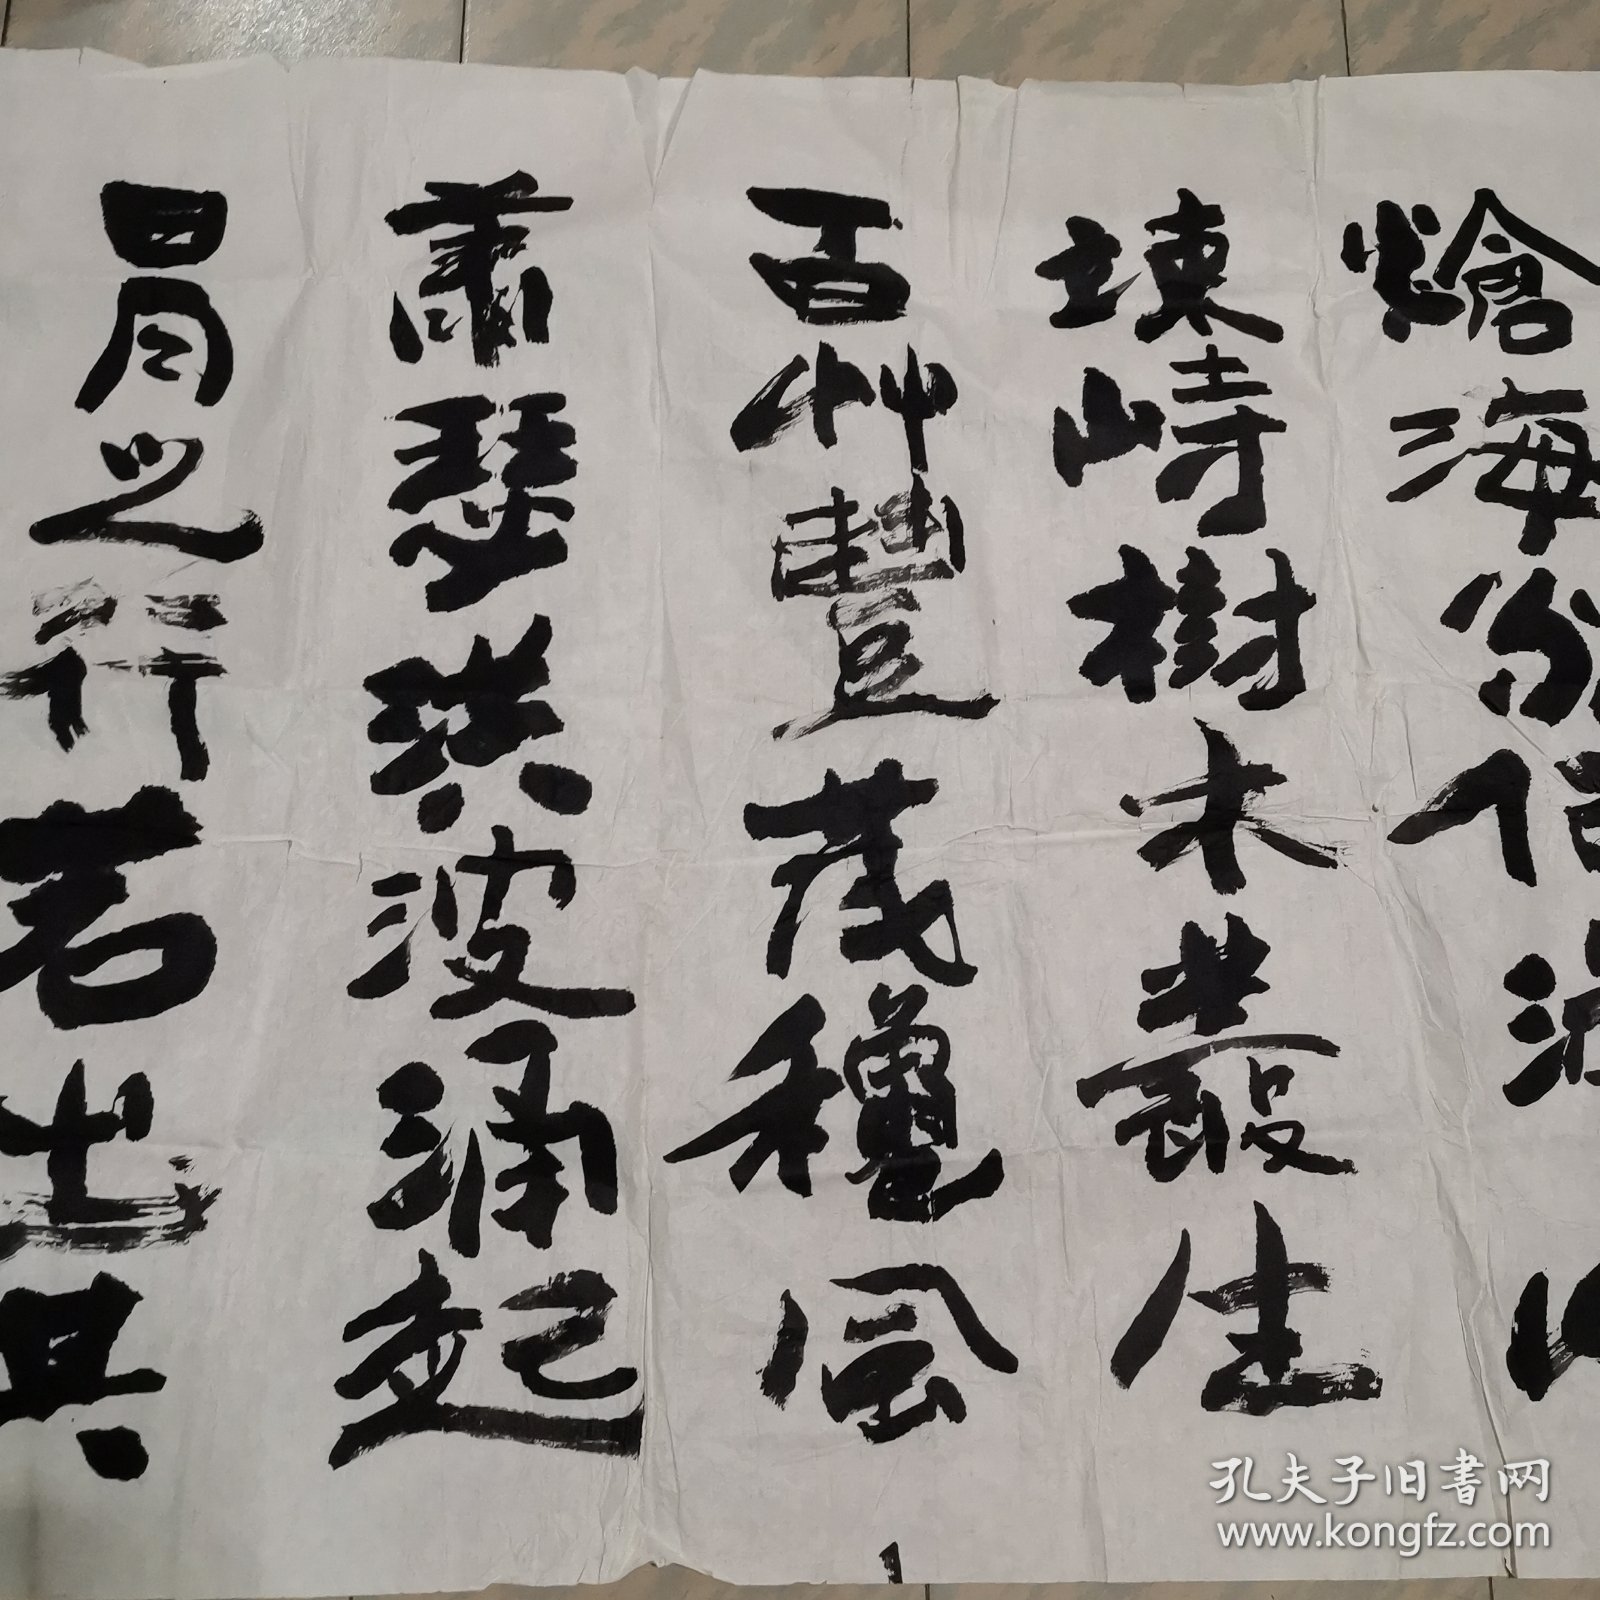 滄海水何澹山
竦峙樹木叢生
百艸豐茂穐風
蕭瑟洪波涌起
日月之行若出其
孔夫子旧书网
www.kongfz.com